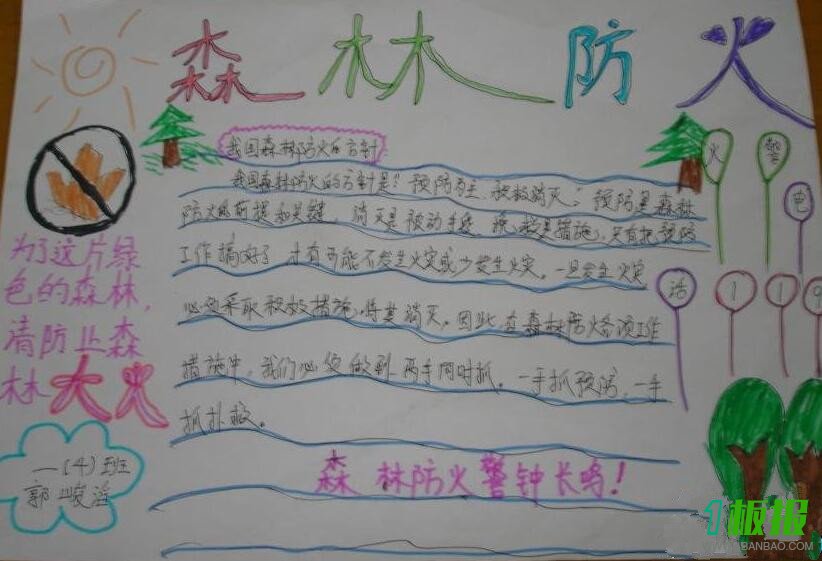 森林防火
我国森林防火的方针
我国森林防火的方针是："预防为主，积极消灭。"预防是森林
防火的前提和关键，消灭是被动手段、挽救措施，只有把预防
工作搞好了，才有可能不发生火灾或少发生火灾。一旦发生火灾
必须采取积极措施，将其消灭。因此，在森林防火各项工作
措施中，我们必须做到两手同时抓，一手抓预防，一手
抓扑救。
森林防火警钟长鸣！
为了这片绿
色的森林，
请防止森
林大火
一(4)班
郭峻
火警电
话119
1板报
BANBAO.COM